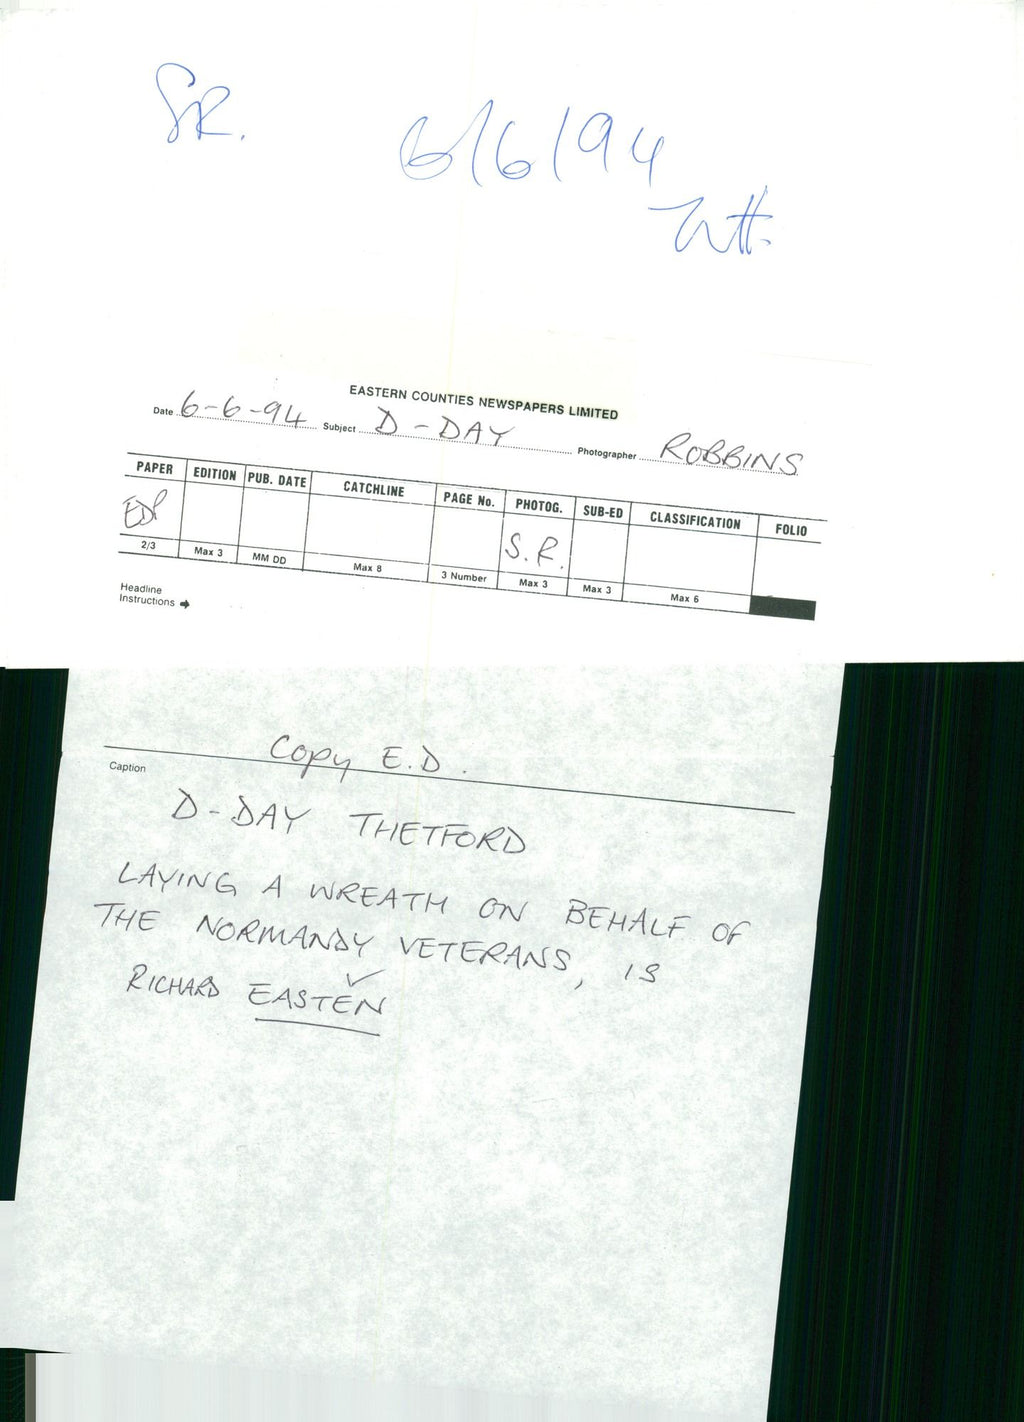 SR.
6/6/94
EASTERN COUNTIES NEWSPAPERS LIMITED
Date 6-6-94 Subject D-DAY Photographer ROBBINS
PAPER EDITION PUB. DATE CATCHLINE PAGE No. PHOTOG. SUB-ED CLASSIFICATION FOLIO
EDP S.R.
2/3 Max 3 MM DD Max 8 3 Number Max 3 Max 3 Max 6
Headline
Instructions →
Copy E.D.
Caption
D-DAY THETFORD
LAYING A WREATH ON BEHALF OF
THE NORMANDY VETERANS, IS
RICHARD EASTEN ✓